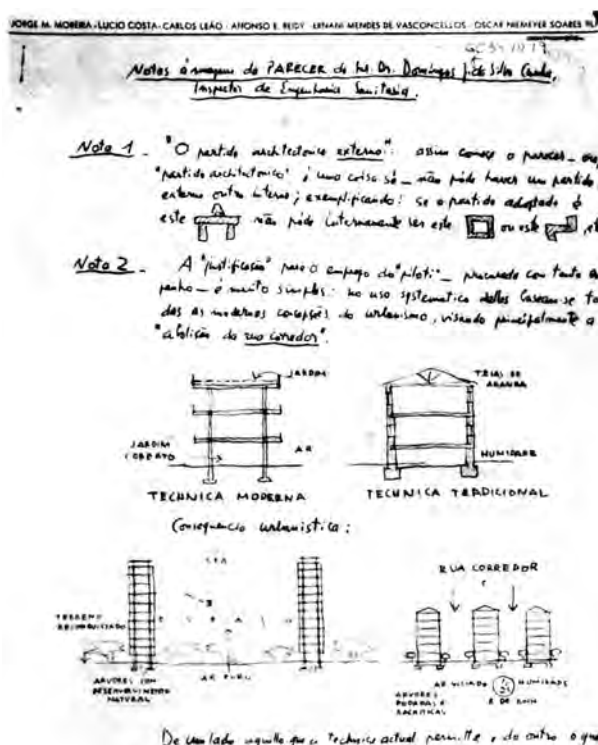 JORGE M. MOREIRA - LUCIO COSTA - CARLOS LEÃO - AFFONSO E. REIDY - ERNANI MENDES DE VASCONCELLOS - OSCAR NIEMEYER SOARES
Notas á margem do PARECER do Dr. Domingos Silva Cunha,
Inspector de Engenharia Sanitaria.
Nota 1 - "O partido architectonico externo": assim começa o parecer -
"partido architectonico" é uma coisa só - não póde haver um partido
externo outro interno; exemplificando: se o partido adoptado é
este não póde internamente ser este ou este
Nota 2 - A "justificação" para o emprego do "piloti" - procurada com tanto
penho - é muito simples: no uso systematico delles baseam-se to
das as modernas concepções do urbanismo, visando principalmente a
"abolição da rua corredor".
JARDIM
TEIAS DE
ARANHA
JARDIM
COBERTO
AR
HUMIDADE
TECHNICA MODERNA
TECHNICA TRADICIONAL
Consequencia urbanistica:
RUA CORREDOR
TERRENO
RECONQUISTADO
ARVORES COM
DESENVOLVIMENTO
NATURAL
AR PURO
AR VICIADO
HUMIDADE
ARVORES
PODADAS E
RACHITICAS
De um lado aquillo que a technica actual permitte e do outro o que